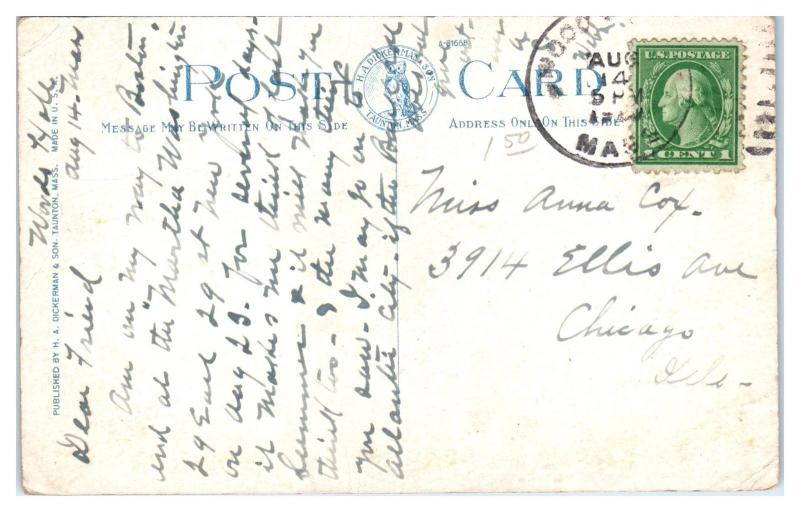 POST CARD
A-81668
H. A. DICKERMAN & SON.
TAUNTON, MASS.
MESSAGE MAY BE WRITTEN ON THIS SIDE
ADDRESS ONLY ON THIS SIDE
PUBLISHED BY H. A. DICKERMAN & SON. TAUNTON, MASS. MADE IN U. S. A.
Woods Hole
Aug 14. Mass
Dear Friend
Am on my way to Boston.
and at the "Martha Washington"
29 East 29 st New York
on Aug 23. For several days.
it makes me think of last
Summer & it will make you
think too - & the many things
you saw - I may go on to
Atlantic City - if the
AUG
14
5 PM
MASS
U.S. POSTAGE
1 CENT 1
1 50
Miss Anna Cox.
3914 Ellis Ave
Chicago
Ills -